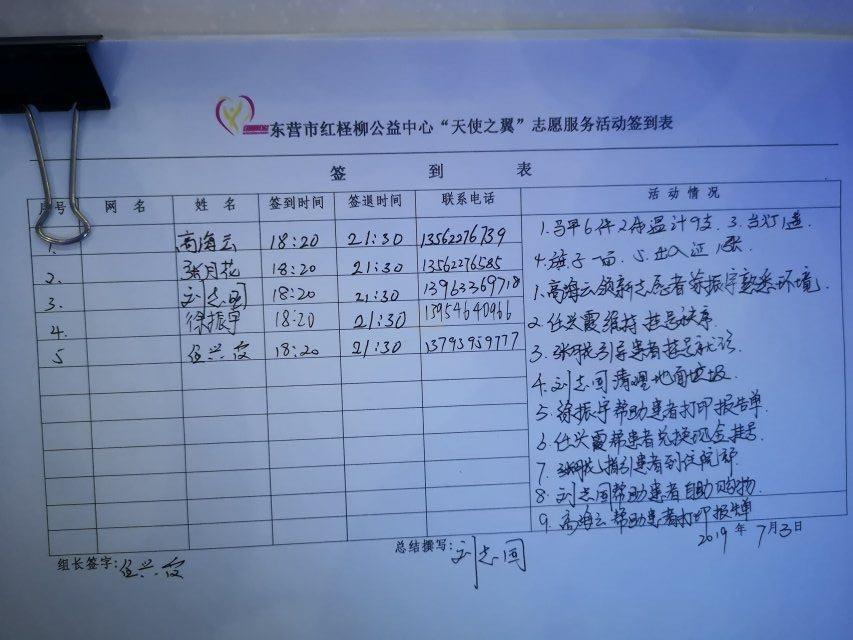 东营市红柽柳公益中心“天使之翼”志愿服务活动签到表
签 到 表
序号 网 名 姓 名 签到时间 签退时间 联系电话 活 动 情 况
1. 高海云 18:20 21:30 13562276739
2. 张月花 18:20 21:30 13562276585
3. 刘志国 18:20 21:30 13963369718
4. 徐振宇 18:20 21:30 13954640966
5 任兴霞 18:20 21:30 13793959777
1.马甲6件2体温计9支.3.台灯1盏.
4.旗子一面.5.出入证1张
1.高海云领新志愿者徐振宇熟悉环境.
2.任兴霞维持挂号秩序
3.张月花引导患者挂号就诊
4.刘志国清理地面垃圾.
5.徐振宇帮助患者打印报告单.
6.任兴霞帮患者兑换现金挂号.
7.张月花指引患者到住院部
8.刘志国帮助患者自助购物.
9.高海云帮助患者打印报告单
2019年7月3日
组长签字:任兴霞
总结撰写:刘志国